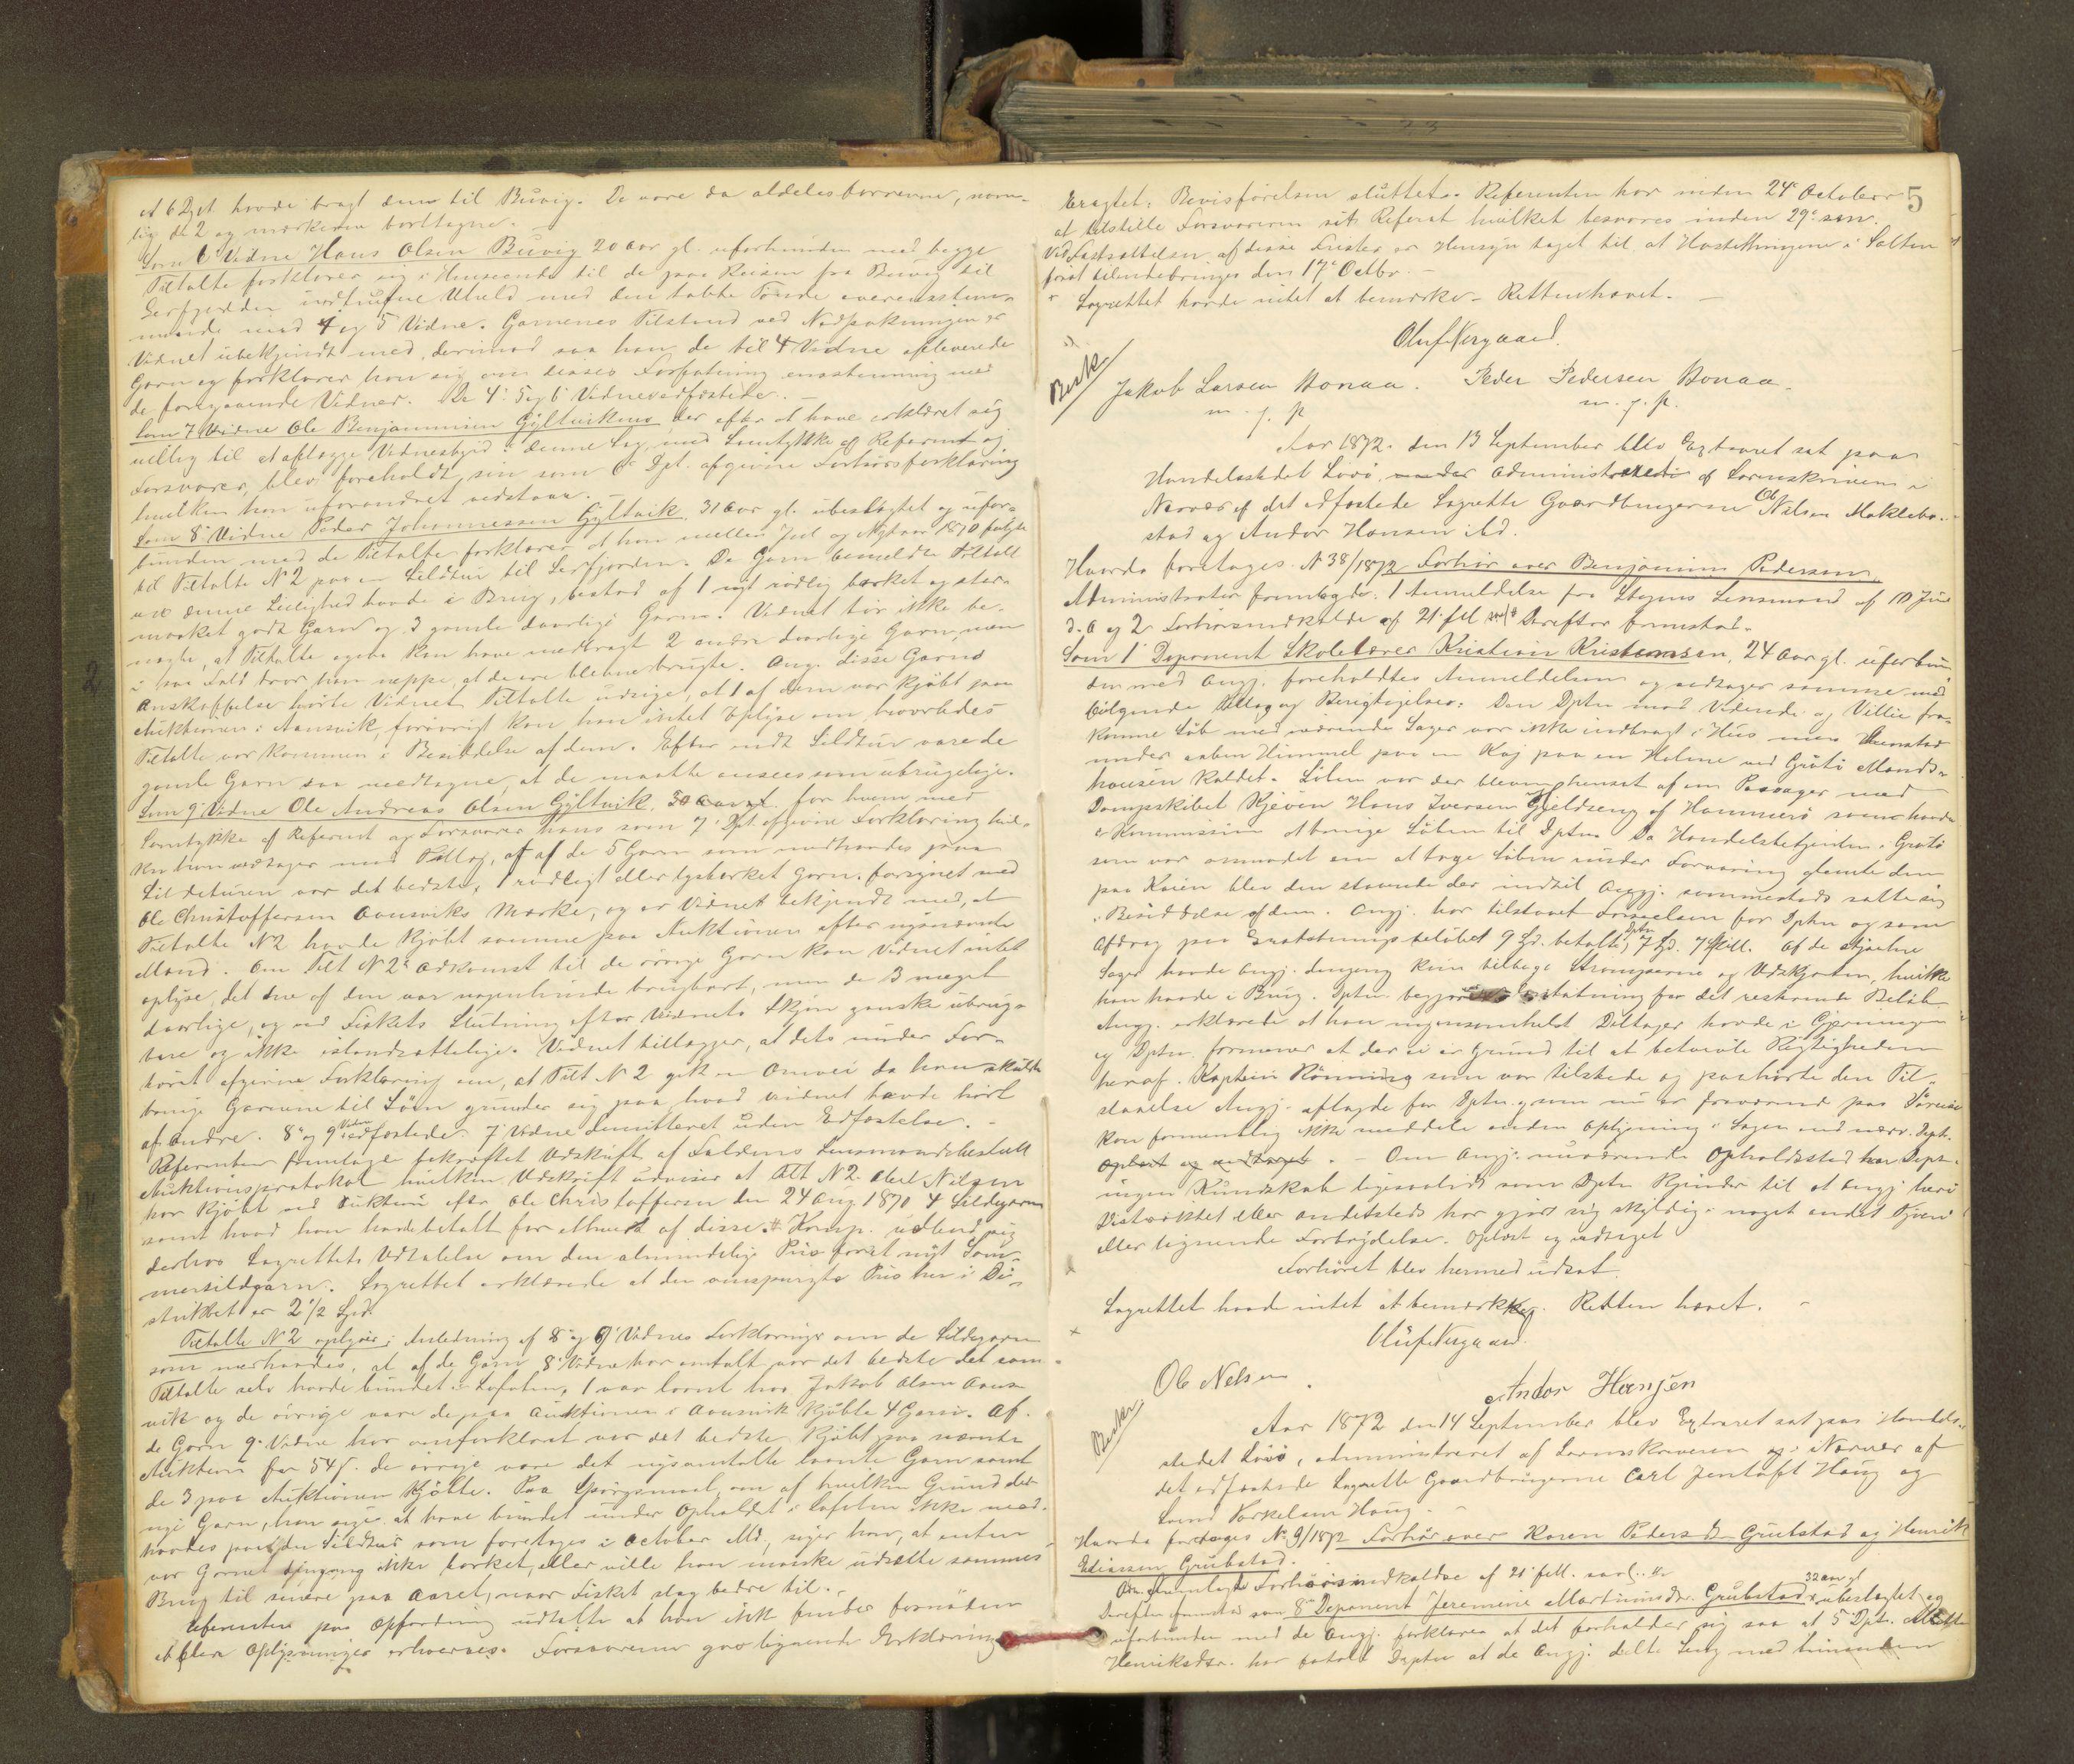 at 6 Dpt. havde bragt dem til Buvig. De vare da aldeles forrevne, navn-
lig de 2 og mærkerne borttagne.
Som 6 Vidne Hans Olsen Buvig 20 Aar gl. uforbunden med begge
Tiltalte forklarer sig i Henseende til de paa Reisen fra Buvig til
Serfjorden indtrufne Uheld med den tabte Tønde overensstem-
mende med 4 og 5 Vidne. Garnenes Tilstand ved Nedpakningen er
Vidnet ubekjendt med, derimod saa han de til 4 Vidne afleverede
Garn og forklarer han sig om disses Forfatning enstemmig med
de foregaaende Vidner. De 4' 5' og 6' Vidne edfæstede. -
Som 7 Vidne Ole Benjaminsen Gyltvikens der efter at have erklæret sig
villig til at aflægge Vidnesbyrd i denne Sag, med Samtykke af Referent og
Forsvarer, blev foreholdt sin som 6te Dpt. afgivne Forhørsforklaring
hvilken han uforandret vedstaar. -
Som 8' Vidne Peder Johannessen Gyltvik, 31 Aar gl. ubeslægtet og ufor-
bunden med de Tiltalte forklarer at han mellem Jul og Nytaar 1870 fulgte
til Tiltalte N 2 paa en Sildtur til Serfjorden. De Garn bemeldte Tiltalt
ved denne Leilighed havde i Brug, bestod af 1 nyt rødlig barket og stær-
mærket godt Garn og 3 gamle daarlige Garn. Vidnet tør ikke be-
nægte, at Tiltalte ogsaa kan have medbragt 2 andre daarlige Garn, men
i saa Fald tror han neppe, at de ere blevne brugte. Ang. disse Garns
Anskaffelse hørte Vidnet Tiltalte udsige, at 1 af dem var kjøbt paa
Auktionen i Aansvik, forøvrigt kan han intet oplyse om, hvorledes
Tiltalte var kommen i Besiddelse af dem. Efter endt Sildtur vare de
gamle Garn saa medtagne, at de maatte ansees som ubrugelige.
Som 9' Vidne Ole Andreas Olsen Gyltvik, 30 Aar gl. for hvem med
Samtykke af Referent og Forsvarer hans som 7' Dpt. afgivne Forklaring hvil-
ken han vedtager med Tillæg, at af de 5 Garn som medhavdes paa
Sildeturen var det bedste, 1 rødligt eller lysbarket Garn, forsynet med
Ole Christoffersen Aansviks Mærke, og er Vidnet bekjendt med, at
Tiltalte N 2 havde kjøbt samme paa Auktionen efter nysnævnte
Mand. Om Tilt N 2s Adkomst til de øvrige Garn kan Vidnet intet
oplyse, det ene af dem var nogenlunde brugbart, men de 3 meget
daarlige, og ved Fiskets Slutning efter Vidnets Skjøn ganske ubrug-
bare og ikke istandsættelige. Vidnet tillægger, at dets under For-
høret afgivne Forklaring om, at Tilt N 2 gik en Omvei da han skulde
bringe Garnene til Søen grunder sig paa, hvad Vidnet havde hørt
af Andre. 8' og 9' Vidne edfæstede. 7' Vidne demitteret uden Edfæstelse. -
Referenten fremlagde bekræftet Udskrift af Foldens Lensmandsbestill
Auktionsprotokol hvilken Udskrift udviser at Tilt N 2 Abel Nilsen
har kjøbt ved Auktion efter Ole Christoffersen den 24 Aug 1870 4 Sildegarn
samt hvad han har betalt for ethvert af disse. Komp. udbad sig
derhos Lagrettets Udtalelse om den almindelige Pris for et nyt Som-
mersildgarn. Lagrettet erklærede at den omspurgte Pris her i Di-
striktet er 2 1/2 Spd.
Tiltalte N 2 oplyser i Anledning af 8' og 9' Vidnes Forklaringer om de Sildegarn
som medhavdes, at af de Garn 8' Vidne har omtalt var det bedste det som
Tiltalte selv havde bundet i Lofoten, 1 var laant hos Jakob Olsen Aans-
vik og de øvrige vare de paa Auktionen i Aansvik kjøbte 4 Garn. Af
de Garn 9' Vidne har omforklaret var det bedste kjøbt paa nævnte
Auktion for 54 s. de øvrige vare det nysomtalte laante Garn samt
de 3 paa Auktionen kjøbte. Paa Spørgsmaal, om af hvilken Grund det
nye Garn, han siger at have bundet under Opholdet i Lofoten ikke med-
havdes paa den Sildtur som foretoges i October Md, siger han, at enten
var Garnet dengang ikke barket, eller ville han maaske udsætte sammes
Brug til senere paa Aaret, naar Fisket slog bedre til. -
Referenten paa Opfordring udtalte at han ikke finder fornøden
at flere Oplysninger erhverves. Forsvareren gav lignende Erklæring

5
Eragtet: Bevisførelsen sluttet. Referenten har inden 24' October
at tilstille Forsvareren sit Referat hvilket besvares inden 29' s.m.
Ved Fastsættelsen af disse Frister er Hensyn taget til at Høstthingene i Salten
først tilendebringes den 17' Octbr. -
Lagrettet havde intet at bemærke - Retten hævet. -
Oluf Nergaard.
Besk
Jakob Larsen Bonaa. Peder Pedersen Bonaa.
m. f. p. m. f. p.
Aar 1872. den 13 September blev Extraret sat paa
Handelsstedet Løvø, under Administration af Sorenskriveren i
Nærvær af det edfæstede Lagrette Gaardbrugerne Ole Nilsen Makleba-
stad og Andor Hansen ibd.
Hvorda foretoges N 38/1872 Forhør over Benjamin Pedersen.
Administrator fremlagde: 1 Anmeldelse fra Stegens Lensmand af 10 Juni
d. A og 2 Forhørsindkaldelse af 21' f.M. Derefter fremstod.
Som 1' Deponent Skolelærer Kristian Kristensen, 24 Aar gl. uforbun-
den med Angj. foreholdtes Anmeldelsen og vedtager samme med
følgende Tillæg og Berigtigelser: Den Dptn mod Vidende og Villie fra-
komne Løb med værende Sager var ikke indbragt i Hus men henstod
under aaben Himmel paa en Kaj paa en Holme ved Grøtø Mands-
housen kaldet. Løben var der bleven henset af en Passager med
Dampskibet Kjeøen Hans Iversen Gjeldseng af Hammerø som havde
i Kommission at bringe Løben til Dptn. Da Handelsbetjenten i Grøtø
som var anmodet om at tage Løben under Forvaring glemte den
paa Kaien blev den staaende der indtil Angj. sammesteds satte sig
i Besiddelse af den. Angj. har tilstaaet Forseelsen for Dptn og som
Afdrag paa Erstatningsbeløbet 9 Spd. betalte Dptn 7 Spd. 7 Skill. Af de stjaalne
Sager havde Angj. dengang kun tilbage Strømperne og Udskjorten, hvilke
han havde i Brug. Dptn. begjærer Erstatning for det resterende Beløb
Angj. erklærede at han ingensomhelst Deltager havde i Gjerningen
og Dptn. formener at der ei er Grund til at betvivle Rigtigheden
heraf. Kaptein Rønning som var tilstede og paahørte den Til-
staaelse Angj. aflagde for Dptn. og som nu er fraværende paa Søreise
kan formentlig ikke meddele anden Oplysning i Sagen end nærv. Dept.
Oplæst og vedtaget. - Om Angj. nuværende Opholdssted har Dept.
ingen Kundskab ligesaalidt som Dptn kjender til at Angj heri
Distriktet eller andetsteds har gjort sig skyldig i noget andet Tyveri
eller lignende Forbrydelse. Oplæst og vedtaget
Forhøret blev hermed udsat.
Lagrettet havde intet at bemærke. Retten hævet. -
Oluf Nergaard.
Ole Nelsen. Andor Hansen
Besk
Aar 1872 den 14 September blev Extraret sat paa Handels-
stedet Løvø, administreret af Sorenskriveren og i Nærvær af
det edfæstede Lagrette Gaardbrugerne Carl Jentoft Haug og
Svend Torkelsen Haug. -
Hvorda foretoges N. 9/1872 Forhør over Karen Peders D. Grubstad og Henrik
Eliassen Grubstad.
Adm. fremlagde Forhørsindkaldelse af 21' f.M.
Derefter fremstod som 8' Deponent Jeremine Martinusdr. Grubstad 32 Aar gl ubeslægtet og
uforbunden med de Angj. forklarer at det forholder sig saa at 5' Dpt. Mette
Henriksdtr. har fortalt Deptn at de Angj. delte Seng med hinanden